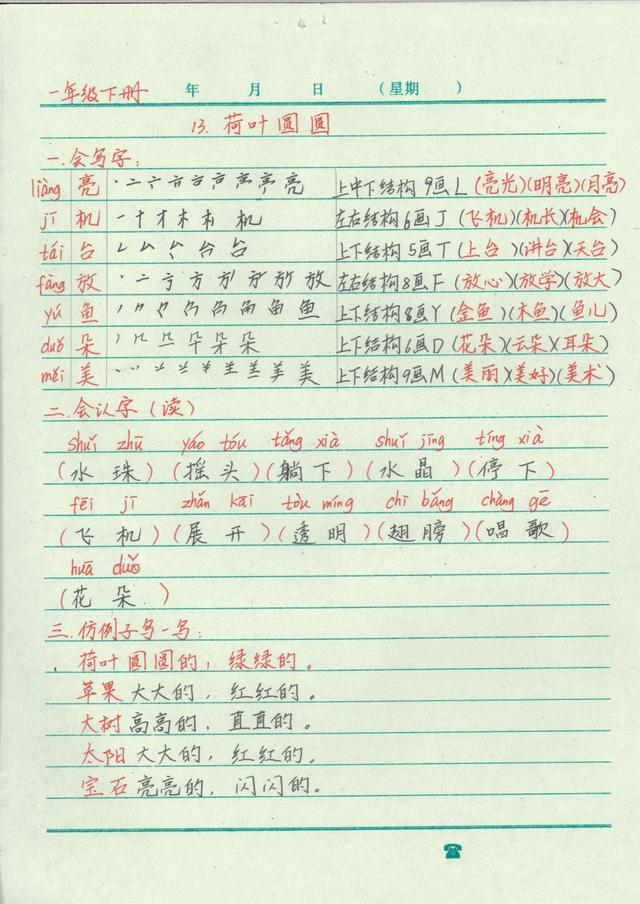 一年级下册 年 月 日 (星期 )
13. 荷叶圆圆
一.会写字:
liàng 亮 上中下结构 9画 L (亮光)(明亮)(月亮)
jī 机 左右结构 6画 J (飞机)(机长)(机会)
tái 台 上下结构 5画 T (上台)(讲台)(天台)
fàng 放 左右结构 8画 F (放心)(放学)(放大)
yú 鱼 上下结构 8画 Y (金鱼)(木鱼)(鱼儿)
duǒ 朵 上下结构 6画 D (花朵)(云朵)(耳朵)
měi 美 上下结构 9画 M (美丽)(美好)(美术)
二.会认字(读)
shuǐ zhū yáo tóu tǎng xià shuǐ jīng tíng xià
(水珠)(摇头)(躺下)(水晶)(停下)
fēi jī zhǎn kāi tòu míng chì bǎng chàng gē
(飞机)(展开)(透明)(翅膀)(唱歌)
huā duǒ
(花朵)
三.仿例子写一写:
荷叶圆圆的,绿绿的。
苹果大大的,红红的。
大树高高的,直直的。
太阳大大的,红红的。
宝石亮亮的,闪闪的。